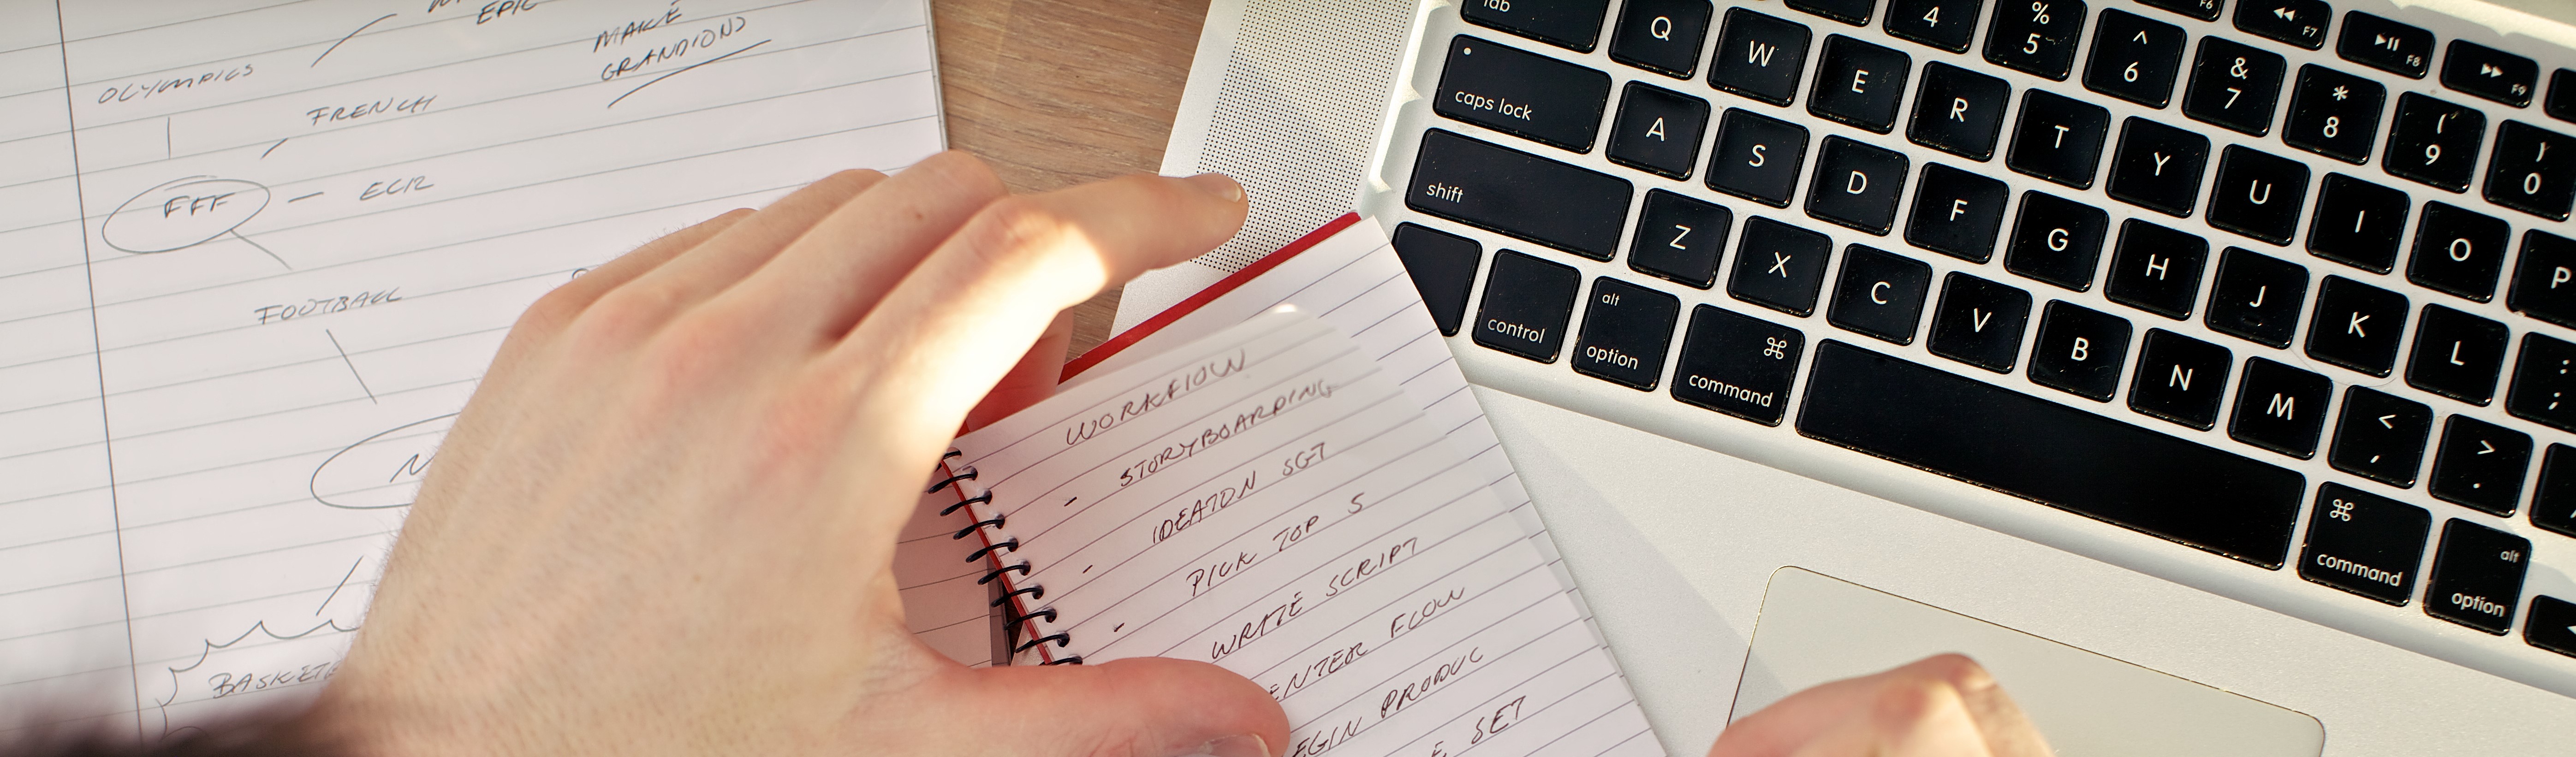 EPIC
MAKE
GRANDIONS
OLYMPICS
FRENCH
FFF - ECR
FOOTBALL
WORKFLOW
- STORYBOARDING
- IDEATON SGT
- PICK TOP 5
WRITE SCRIPT
ENTER FLOW
EGIN PRODUC
SET
tab
Q W E R T Y U I O P
caps lock
A S D F G H J K L : ;
shift
Z X C V B N M < , > .
control
alt
option
⌘
command
⌘
command
alt
option
4
% 5
^ 6
& 7
* 8
( 9
) 0
F6
F7
F8
F9